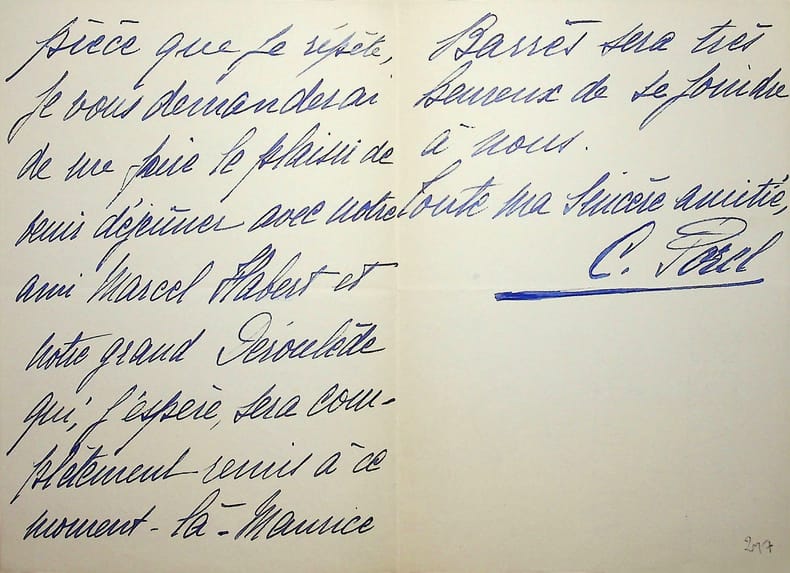 pièce que je répète,
je vous demanderai
de me faire le plaisir de
venir déjeûner avec notre
ami Marcel Habert et
notre grand Déroulède
qui, j'espère, sera com-
plètement remis à ce
moment-là - Maurice
Barrès sera très
heureux de se joindre
à nous.
Toute ma sincère amitié,
C. Porel
217